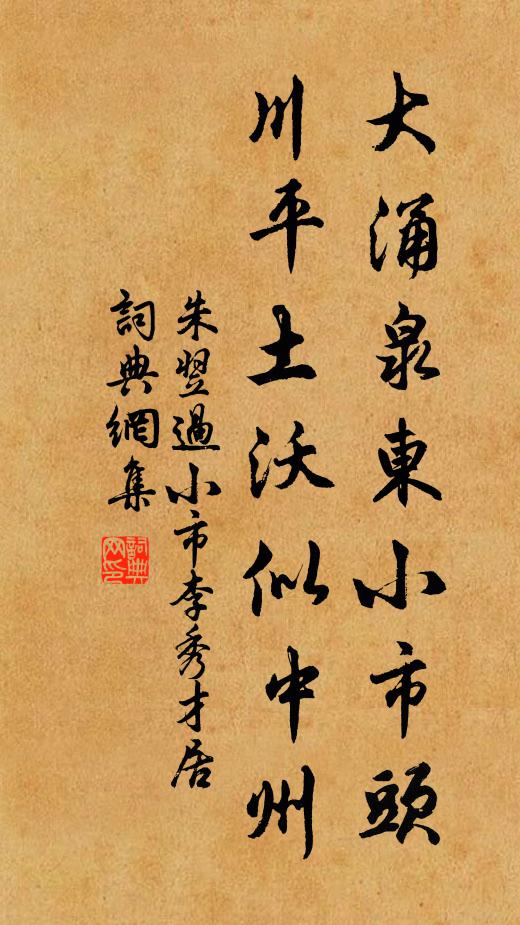 大涌泉東小市頭
川平土沃似中州
朱翌過小市李秀才居
詞典網集
詞典網印